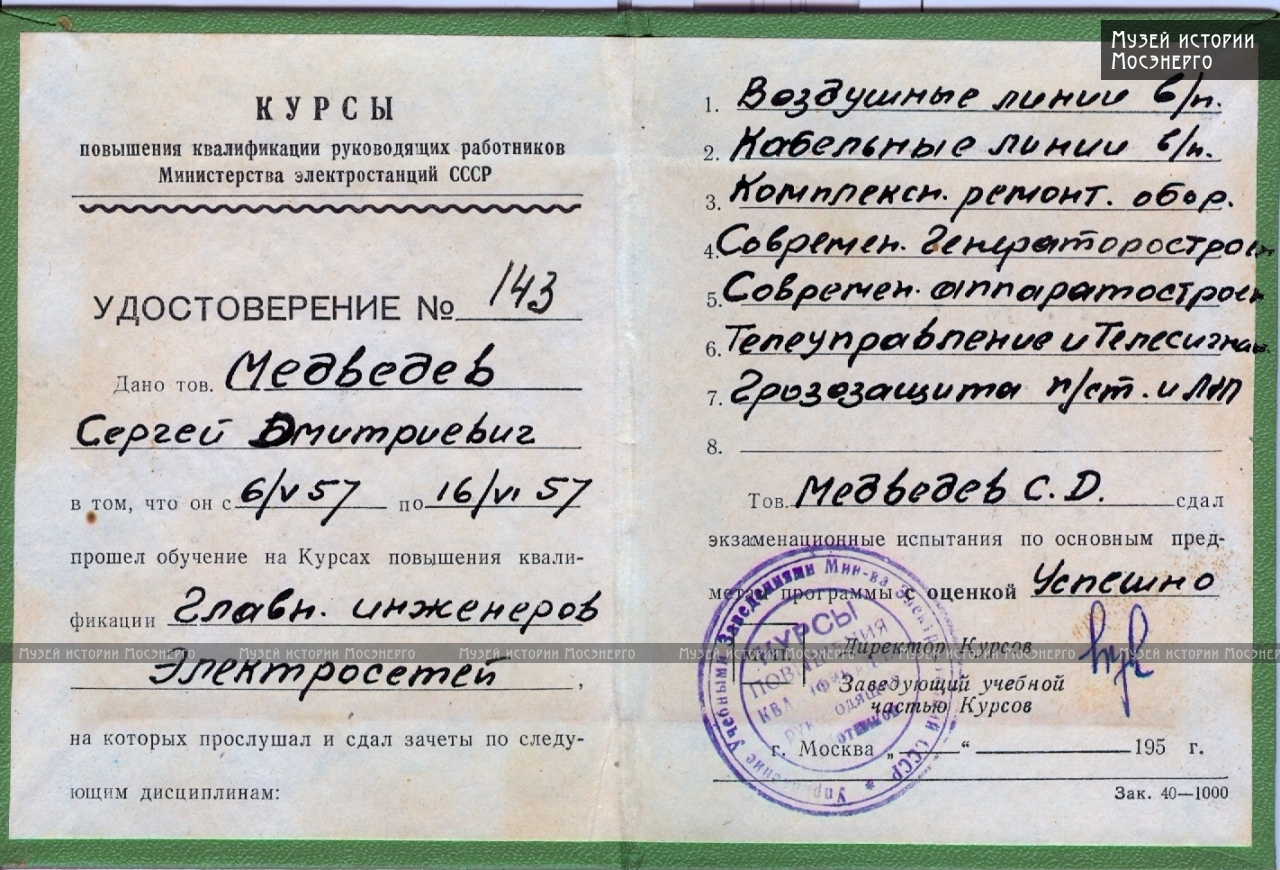 Музей истории
Мосэнерго
КУРСЫ
повышения квалификации руководящих работников
Министерства электростанций СССР
УДОСТОВЕРЕНИЕ № 143
Дано тов. Медведев
Сергей Дмитриевич
в том, что он с 6/V 57 по 16/VI 57
прошел обучение на Курсах повышения квали-
фикации Главн. инженеров
Электросетей,
на которых прослушал и сдал зачеты по следу-
ющим дисциплинам:
1. Воздушные линии в/н.
2. Кабельные линии в/н.
3. Комплексн. ремонт. обор.
4. Современ. Генераторостроен
5. Современ. аппаратостроен
6. Телеуправление и Телесигнал.
7. Грозозащита п/ст. и ЛЭП
8.
Тов. Медведев С. Д. сдал
экзаменационные испытания по основным пред-
метам программы с оценкой Успешно
Директор Курсов
Заведующий учебной
частью Курсов
г. Москва „ “ 195 г.
Зак. 40—1000
Управление Учебными Заведениями Мин-ва Электростанций СССР *
КУРСЫ
ПОВЫШЕНИЯ
КВАЛИФИКАЦИИ
РУКОВОДЯЩИХ
РАБОТНИКОВ
Музей истории Мосэнерго Музей истории Мосэнерго Музей истории Мосэнерго Музей истории Мосэнерго Музей истории Мосэнерго Музей истории Мосэнерго